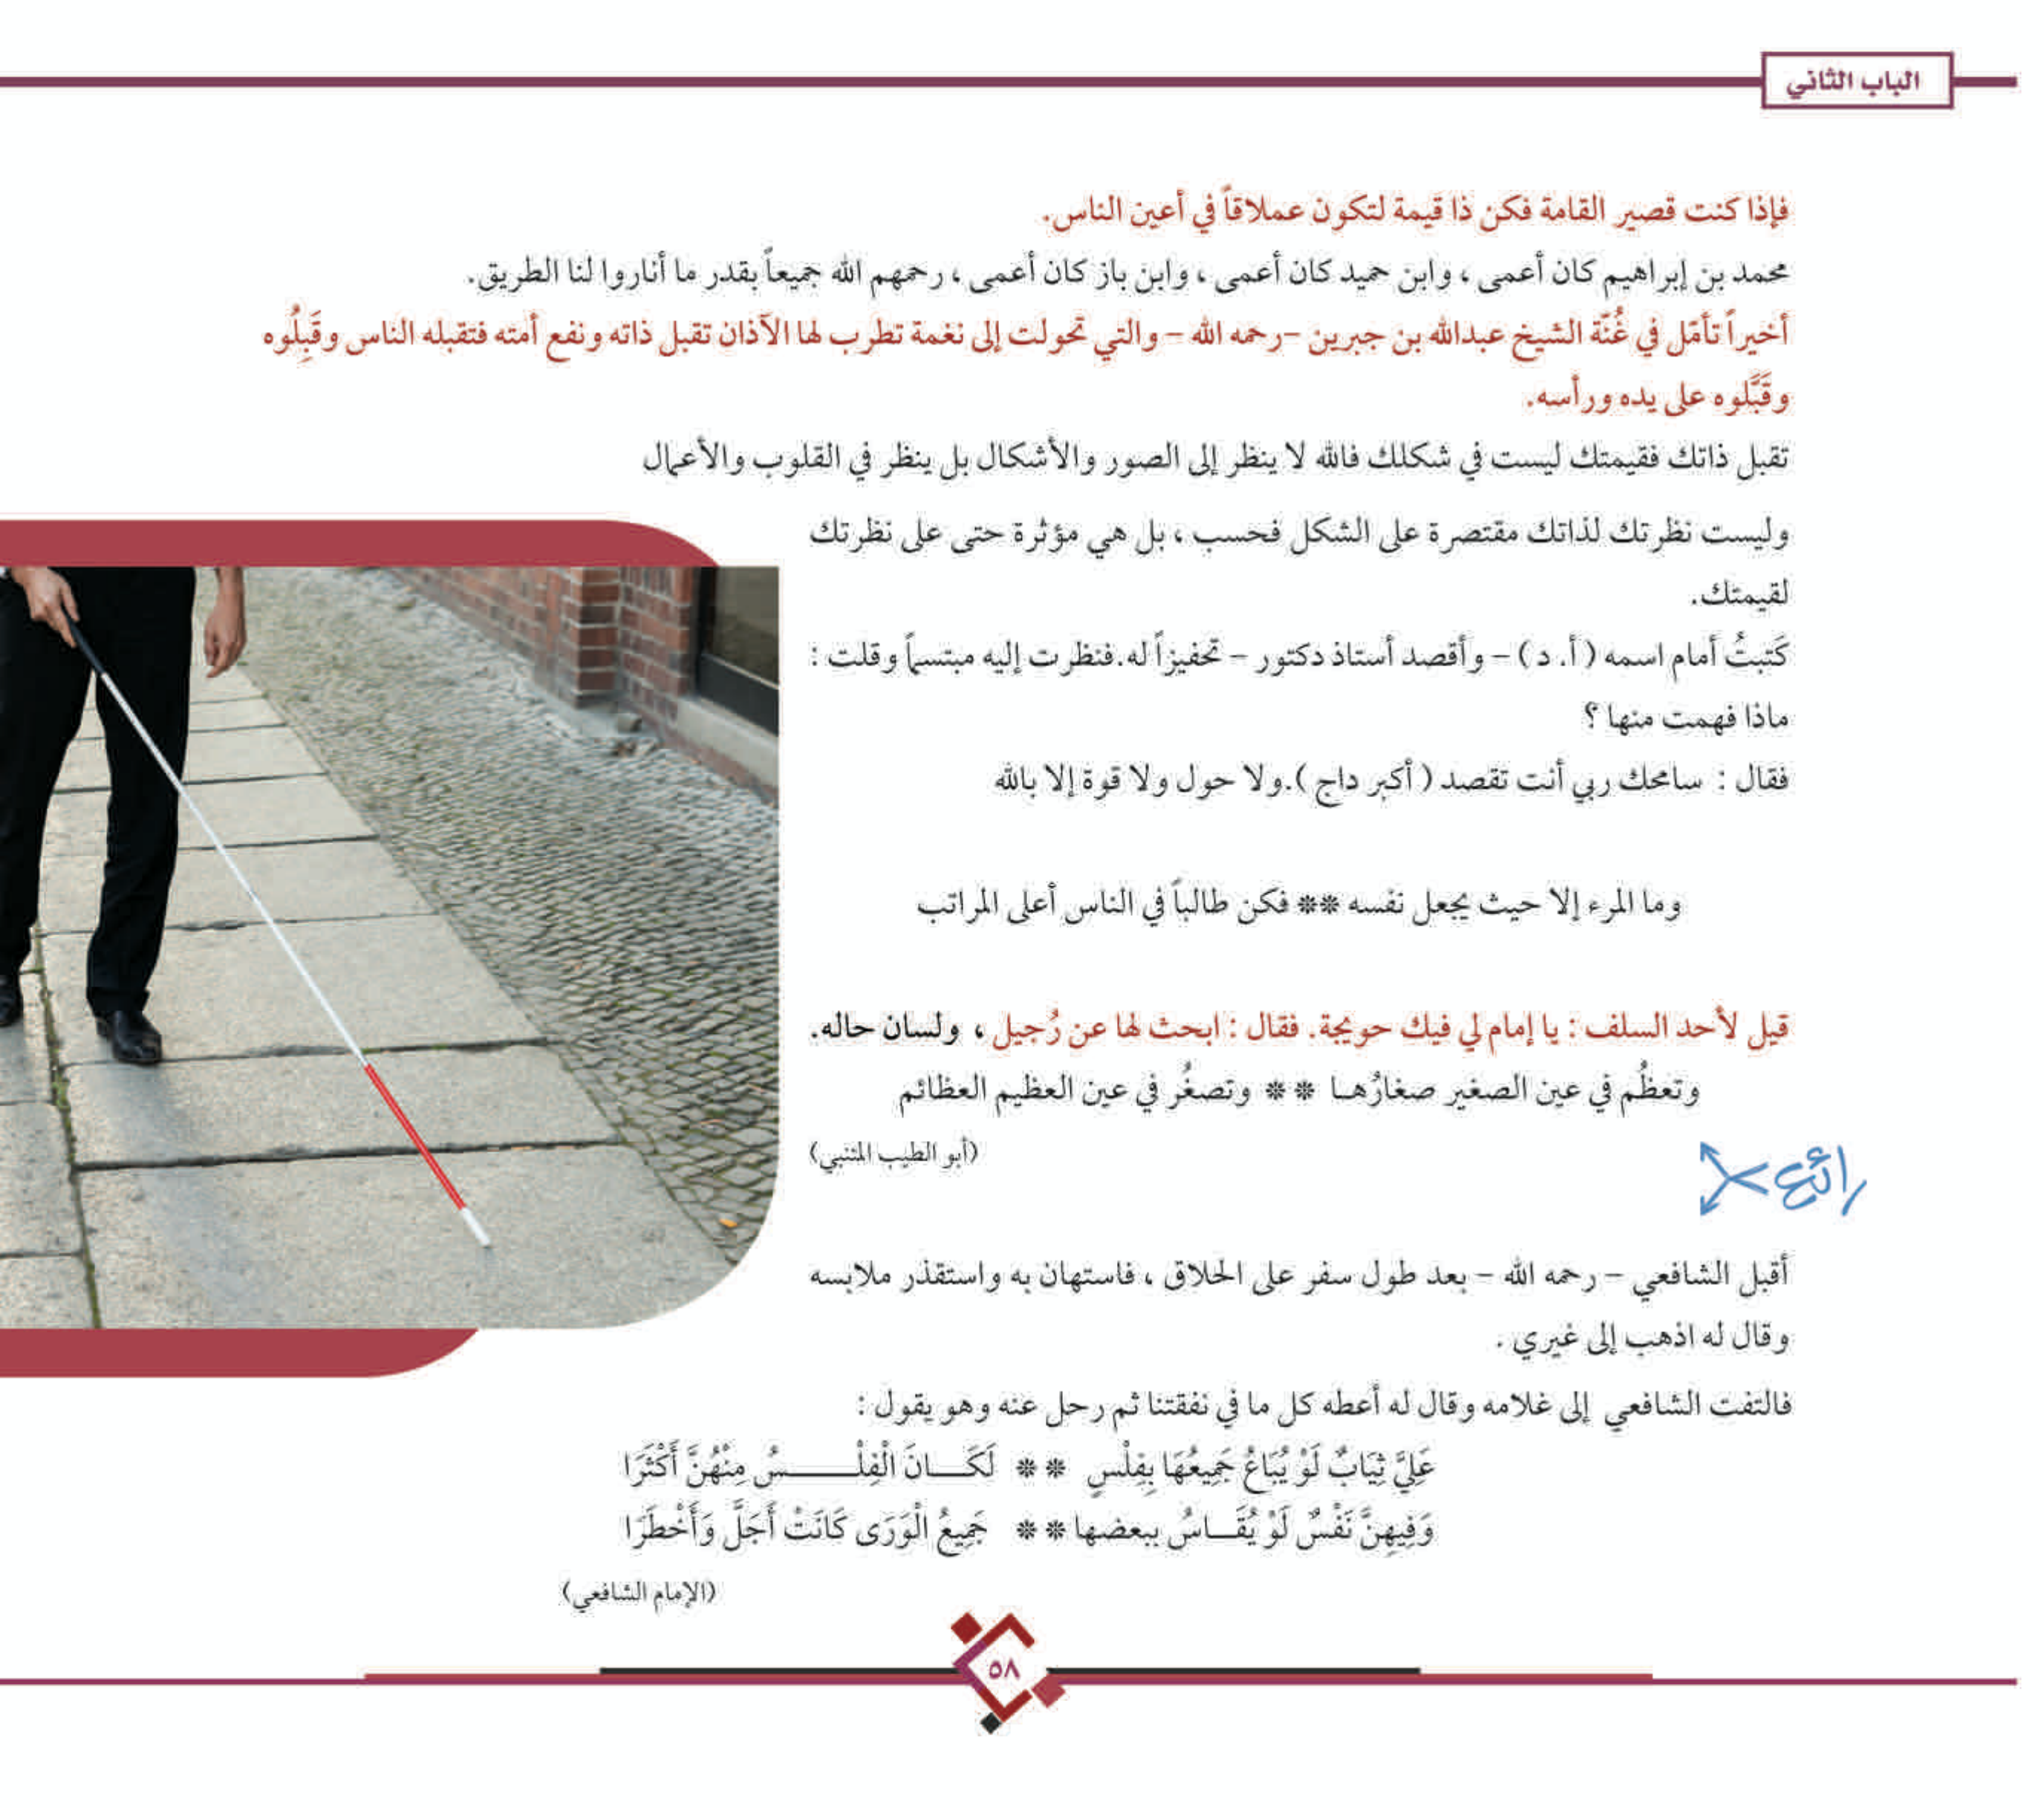 الباب الثاني
فإذا كنت قصير القامة فكن ذا قيمة لتكون عملاقاً في أعين الناس.
محمد بن إبراهيم كان أعمى ، وابن حميد كان أعمى ، وابن باز كان أعمى ، رحمهم الله جميعاً بقدر ما أناروا لنا الطريق.
أخيراً تأمّل في غُنّة الشيخ عبدالله بن جبرين -رحمه الله - والتي تحولت إلى نغمة تطرب لها الآذان تقبل ذاته ونفع أمته فتقبله الناس وقَبِلُوه
وقَبَّلوه على يده ورأسه.
تقبل ذاتك فقيمتك ليست في شكلك فالله لا ينظر إلى الصور والأشكال بل ينظر في القلوب والأعمال
وليست نظرتك لذاتك مقتصرة على الشكل فحسب ، بل هي مؤثرة حتى على نظرتك
لقيمتك.
كَتبتُ أمام اسمه ( أ. د ) - وأقصد أستاذ دكتور - تحفيزاً له.فنظرت إليه مبتسماً وقلت :
ماذا فهمت منها ؟
فقال : سامحك ربي أنت تقصد ( أكبر داج ).ولا حول ولا قوة إلا بالله
وما المرء إلا حيث يجعل نفسه ** فكن طالباً في الناس أعلى المراتب
قيل لأحد السلف : يا إمام لي فيك حويجة. فقال : ابحث لها عن رُجيل ، ولسان حاله.
وتعظُم في عين الصغير صغارُها ** وتصغُر في عين العظيم العظائم
(أبو الطيب المتنبي)
رائع
أقبل الشافعي - رحمه الله - بعد طول سفر على الحلاق ، فاستهان به واستقذر ملابسه
وقال له اذهب إلى غيري .
فالتفت الشافعي إلى غلامه وقال له أعطه كل ما في نفقتنا ثم رحل عنه وهو يقول :
عَلِيَّ ثِيَابٌ لَوْ يُبَاعُ جَمِيعُهَا بِفِلْسٍ ** لَكَـــانَ الْفِلْـــــــسُ مِنْهُنَّ أَكْثَرَا
وَفِيهِنَّ نَفْسٌ لَوْ يُقَـــاسُ ببعضها ** جَمِيعُ الْوَرَى كَانَتْ أَجَلَّ وَأَخْطَرَا
(الإمام الشافعي)
٥٨